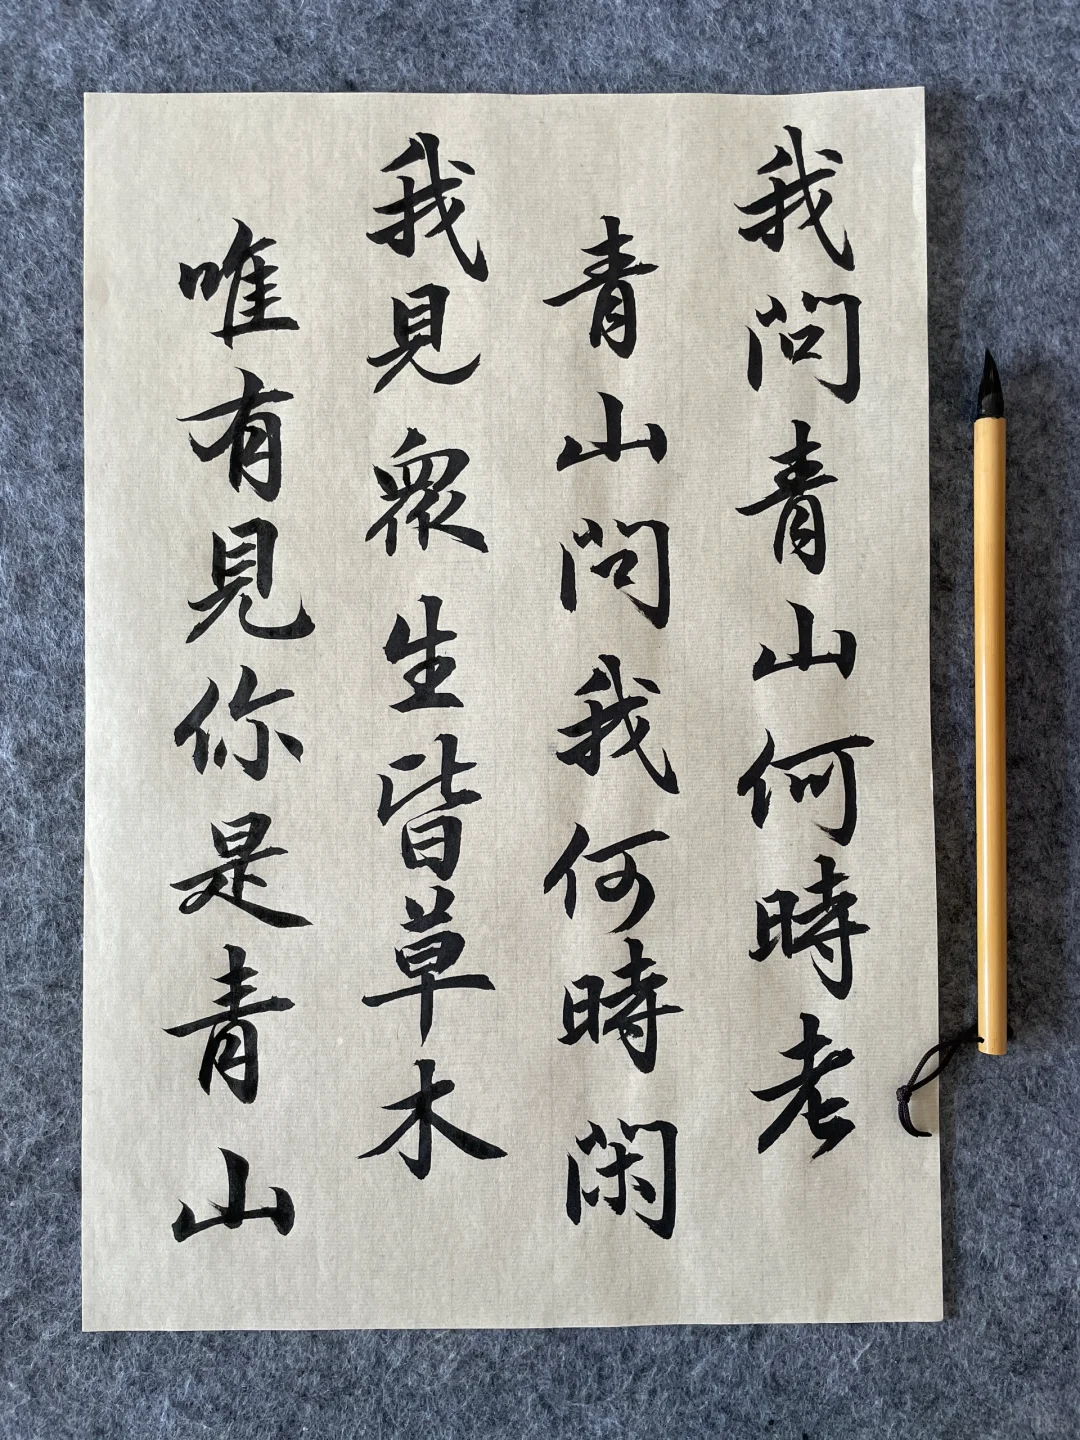 我問青山何時老
青山問我何時閑
我見衆生皆草木
唯有見你是青山